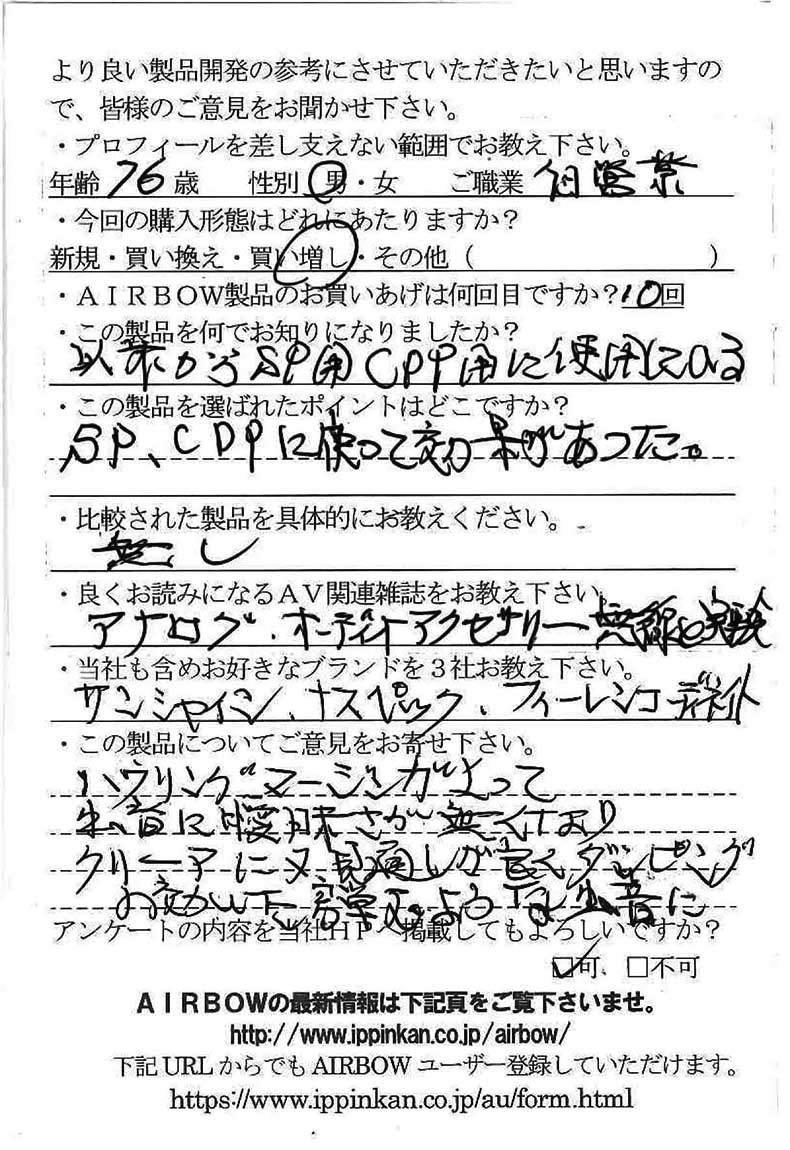 より良い製品開発の参考にさせていただきたいと思いますの
で、皆様のご意見をお聞かせ下さい。
・プロフィールを差し支えない範囲でお教え下さい。
年齢 76 歳 性別 男・女 ご職業 自営業
・今回の購入形態はどれにあたりますか?
新規・買い換え・買い増し・その他( )
・AIRBOW製品のお買いあげは何回目ですか?10回
・この製品を何でお知りになりましたか?
以前からSP用CDP用に使用している
・この製品を選ばれたポイントはどこですか?
SP、CDPに使って効果があった。
・比較された製品を具体的にお教えください。
無し
・良くお読みになるAV関連雑誌をお教え下さい。
アナログ、オーディオアクセサリー 無線と実験
・当社も含めお好きなブランドを3社お教え下さい。
サンシャイン、ナスペック、フィーレンコーディネイト
・この製品についてご意見をお寄せ下さい。
ハウリングマージンが上って
生音に曖昧さが無くなり
クリーアに又見通しが良くダンピング
の効いた
ような生音に
アンケートの内容を当社HPへ掲載してもよろしいですか?
☑可、□不可
AIRBOWの最新情報は下記頁をご覧下さいませ。
http://www.ippinkan.co.jp/airbow/
下記URLからでもAIRBOWユーザー登録していただけます。
https://www.ippinkan.co.jp/au/form.html